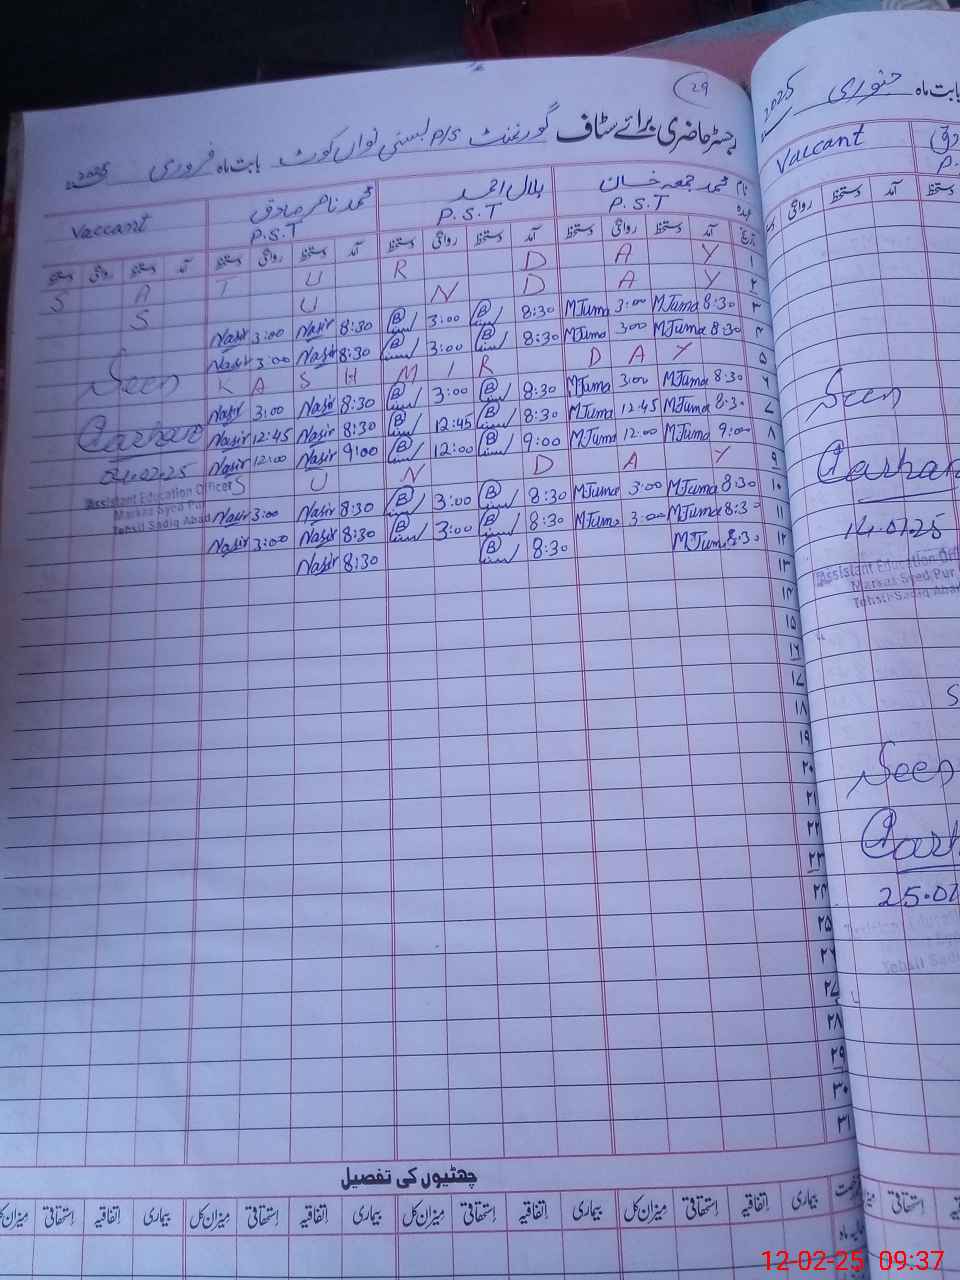 29
رجسٹر حاضری برائے سٹاف گورنمنٹ P/S بستی نواں کوٹ بابت ماہ فروری 2025
نام محمد جمعہ خان بلال احمد محمد ناصر صادق Vaccant
عہدہ P.S.T P.S.T P.S.T
تاریخ آمد دستخط روانگی دستخط آمد دستخط روانگی دستخط آمد دستخط روانگی دستخط آمد دستخط روانگی دستخط
۱ S A T U R D A Y
۲ S U N D A Y
۳ 8:30 MJuma 3:00 MJuma 8:30 B 3:00 B 8:30 Nasir 3:00 Nasir
۴ 8:30 MJuma 300 MJuma 8:30 B 3:00 B 8:30 Nasir 3:00 Nasir
۵ K A S H M I R D A Y
۶ 8:30 MJuma 3:00 MJuma 8:30 B 3:00 B 8:30 Nasir 3:00 Nasir
۷ 8:30 MJuma 12:45 MJuma 8:30 B 12:45 B 8:30 Nasir 12:45 Nasir
۸ 9:00 MJuma 12:00 MJuma 9:00 B 12:00 B 9:00 Nasir 12:00 Nasir
۹ S U N D A Y
۱۰ 8:30 MJuma 3:00 MJuma 8:30 B 3:00 B 8:30 Nasir 3:00 Nasir
۱۱ 8:30 MJuma 3:00 MJuma 8:30 B 3:00 B 8:30 Nasir 3:00 Nasir
۱۲ 8:30 MJuma 8:30 B 8:30 Nasir
۱۳
۱۴
۱۵
۱۶
۱۷
۱۸
۱۹
۲۰
۲۱
۲۲
۲۳
۲۴
۲۵
۲۶
۲۷
۲۸
۲۹
۳۰
۳۱
Seen
04.02.25
Assistant Education Officer
Markaz Syed Pur
Tehsil Sadiq Abad
چھٹیوں کی تفصیل
بیماری اتفاقیہ استحقاقی میزان کل بیماری اتفاقیہ استحقاقی میزان کل بیماری اتفاقیہ استحقاقی میزان کل بیماری اتفاقیہ استحقاقی میزان کل
بابت ماہ جنوری 2025
Vaccant
آمد دستخط روانگی
Seen
14.01.25
Assistant Education
Markaz Syed Pur
Tehsil Sadiq Abad
Seen
استحقاقی
12-02-25 09:37